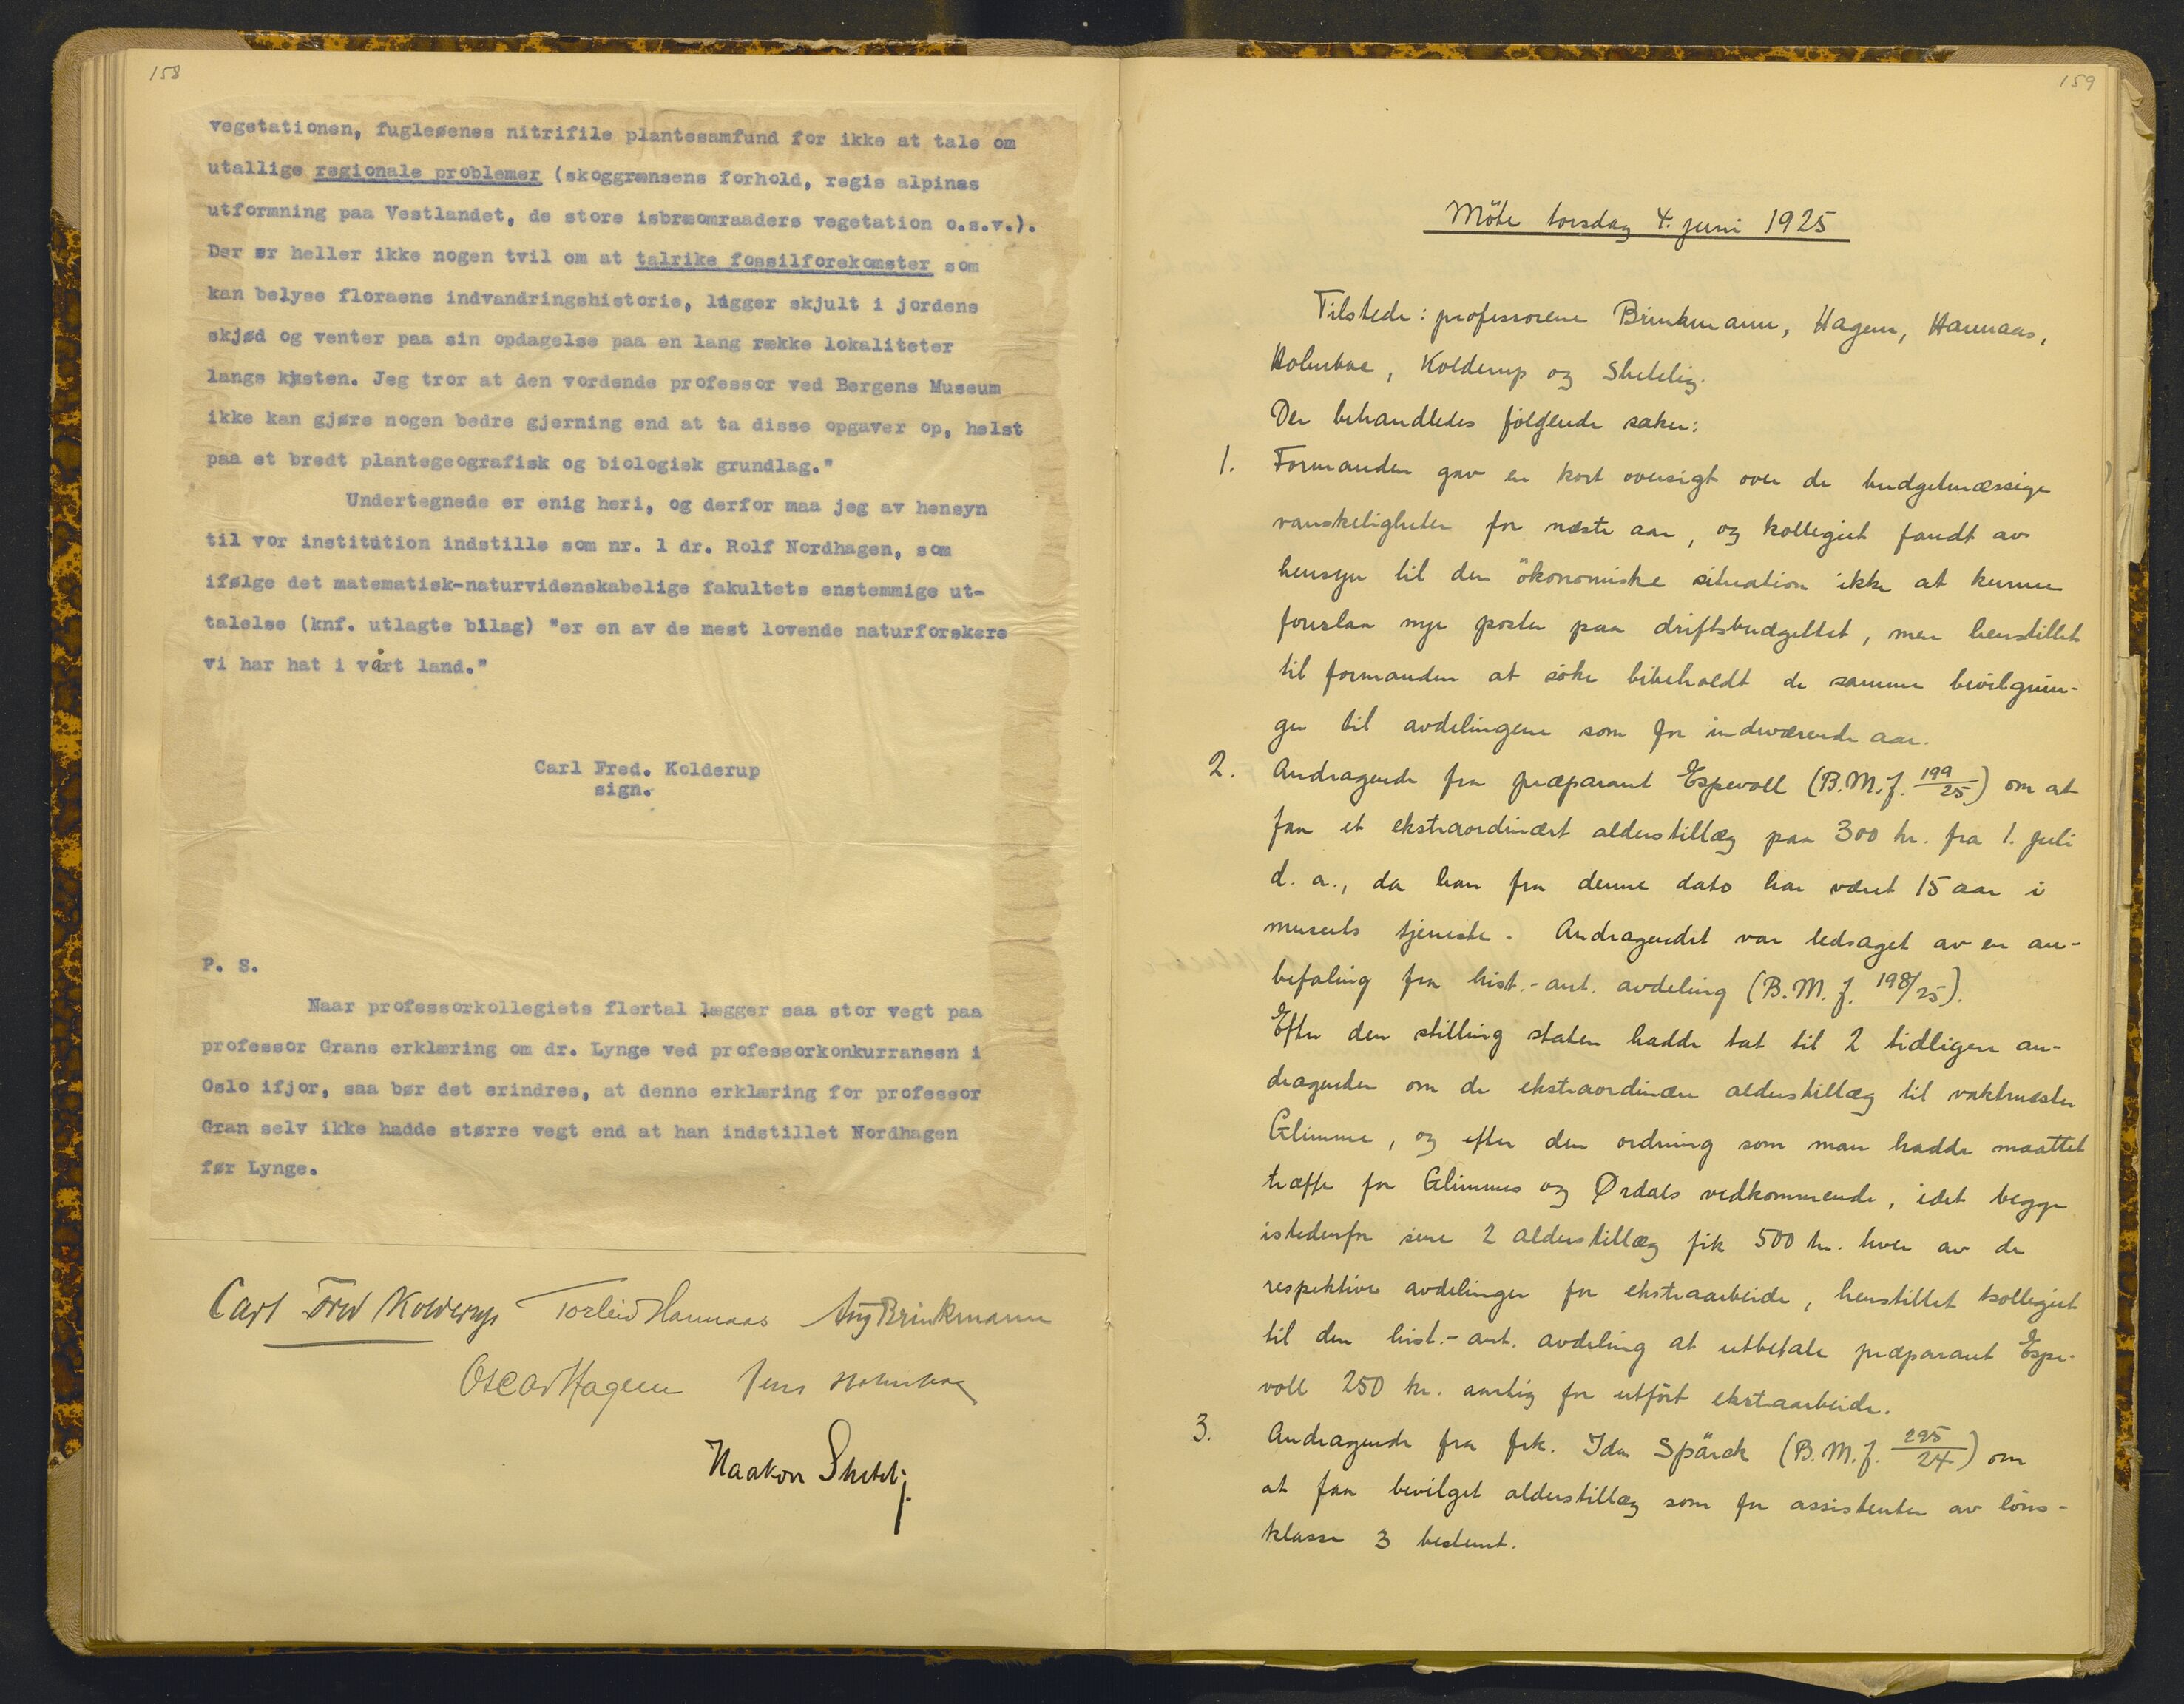 158
vegetationen, fugleøenes nitrifile plantesamfund for ikke at tale om
utallige regionale problemer (skoggrænsens forhold, regis alpinas
utformning paa Vestlandet, de store isbræomraaders vegetation o.s.v.).
Der er heller ikke nogen tvil om at talrike fossilforekomster som
kan belyse floraens indvandringshistorie, ligger skjult i jordens
skjød og venter paa sin opdagelse paa en lang række lokaliteter
langs kysten. Jeg tror at den vordende professor ved Bergens Museum
ikke kan gjøre nogen bedre gjerning end at ta disse opgaver op, helst
paa et bredt plantegeografisk og biologisk grundlag."
Undertegnede er enig heri, og derfor maa jeg av hensyn
til vor institution indstille som nr. 1 dr. Rolf Nordhagen, som
ifølge det matematisk-naturvidenskabelige fakultets enstemmige ut-
talelse (knf. utlagte bilag) "er en av de mest lovende naturforskere
vi har hat i vårt land."
Carl Fred. Kolderup
sign.
P. S.
Naar professorkollegiets flertal lægger saa stor vegt paa
professor Grans erklæring om dr. Lynge ved professorkonkurransen i
Oslo ifjor, saa bør det erindres, at denne erklæring for professor
Gran selv ikke hadde større vegt end at han indstillet Nordhagen
før Lynge.
Carl Fred Kolderup Torleiv Hannaas Aug Brinkmann
Oscar Hagem Jens Holmboe
Haakon Shetelig.
159
Möte torsdag 4. juni 1925
Tilstede: professorene Brinkmann, Hagem, Hannaas,
Holmboe, Kolderup og Shetelig.
Der behandledes følgende saker:
1. Formanden gav en kort oversigt over de budgetmæssige
vanskeligheter for næste aar, og kollegiet fandt av
hensyn til den ökonomiske situation ikke at kunne
foreslaa nye poster paa driftsbudgettet, men henstillet
til formanden at söke bibeholdt de samme bevilgnin-
ger til avdelingene som for indeværende aar.
2. Andragende fra præparant Espevoll (B.M.J. 199/25) om at
faa et ekstraordinært alderstillæg paa 300 kr. fra 1. juli
d. a., da han fra denne dato har været 15 aar i
museets tjeneste. Andragendet var ledsaget av en an-
befaling fra hist.-ant. avdeling (B.M.J. 198/25).
Efter den stilling staten hadde tat til 2 tidligere an-
dragender om de ekstraordinære alderstillæg til vaktmester
Glimme, og efter den ordning som man hadde maattet
træffe for Glimmes og Ørdals vedkommende, idet begge
istedenfor sine 2 alderstillæg fik 500 kr. hver av de
respektive avdelinger for ekstraarbeide, henstillet kollegiet
til den hist.-ant. avdeling at utbetale præparant Espe-
voll 250 kr. aarlig for utfört ekstraarbeide.
3. Andragende fra frk. Ida Spärck (B.M.J. 295/24) om
at faa bevilget alderstillæg som for assistenter av löns-
klasse 3 bestemt.